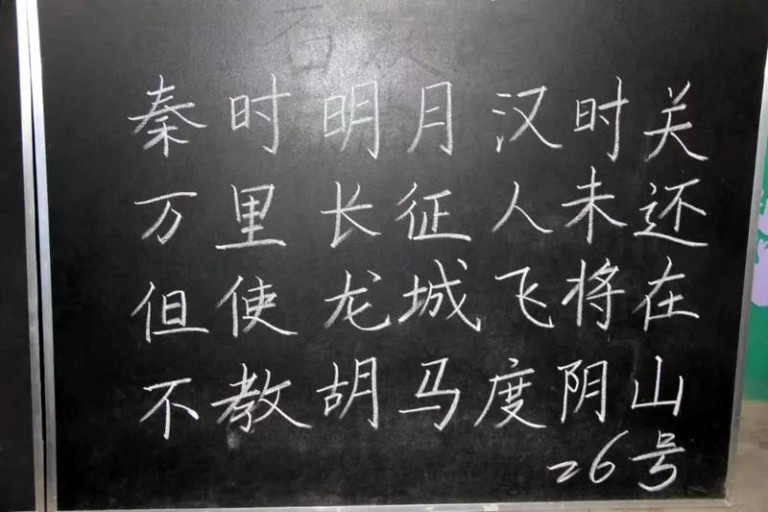 秦时明月汉时关
万里长征人未还
但使龙城飞将在
不教胡马度阴山
26号